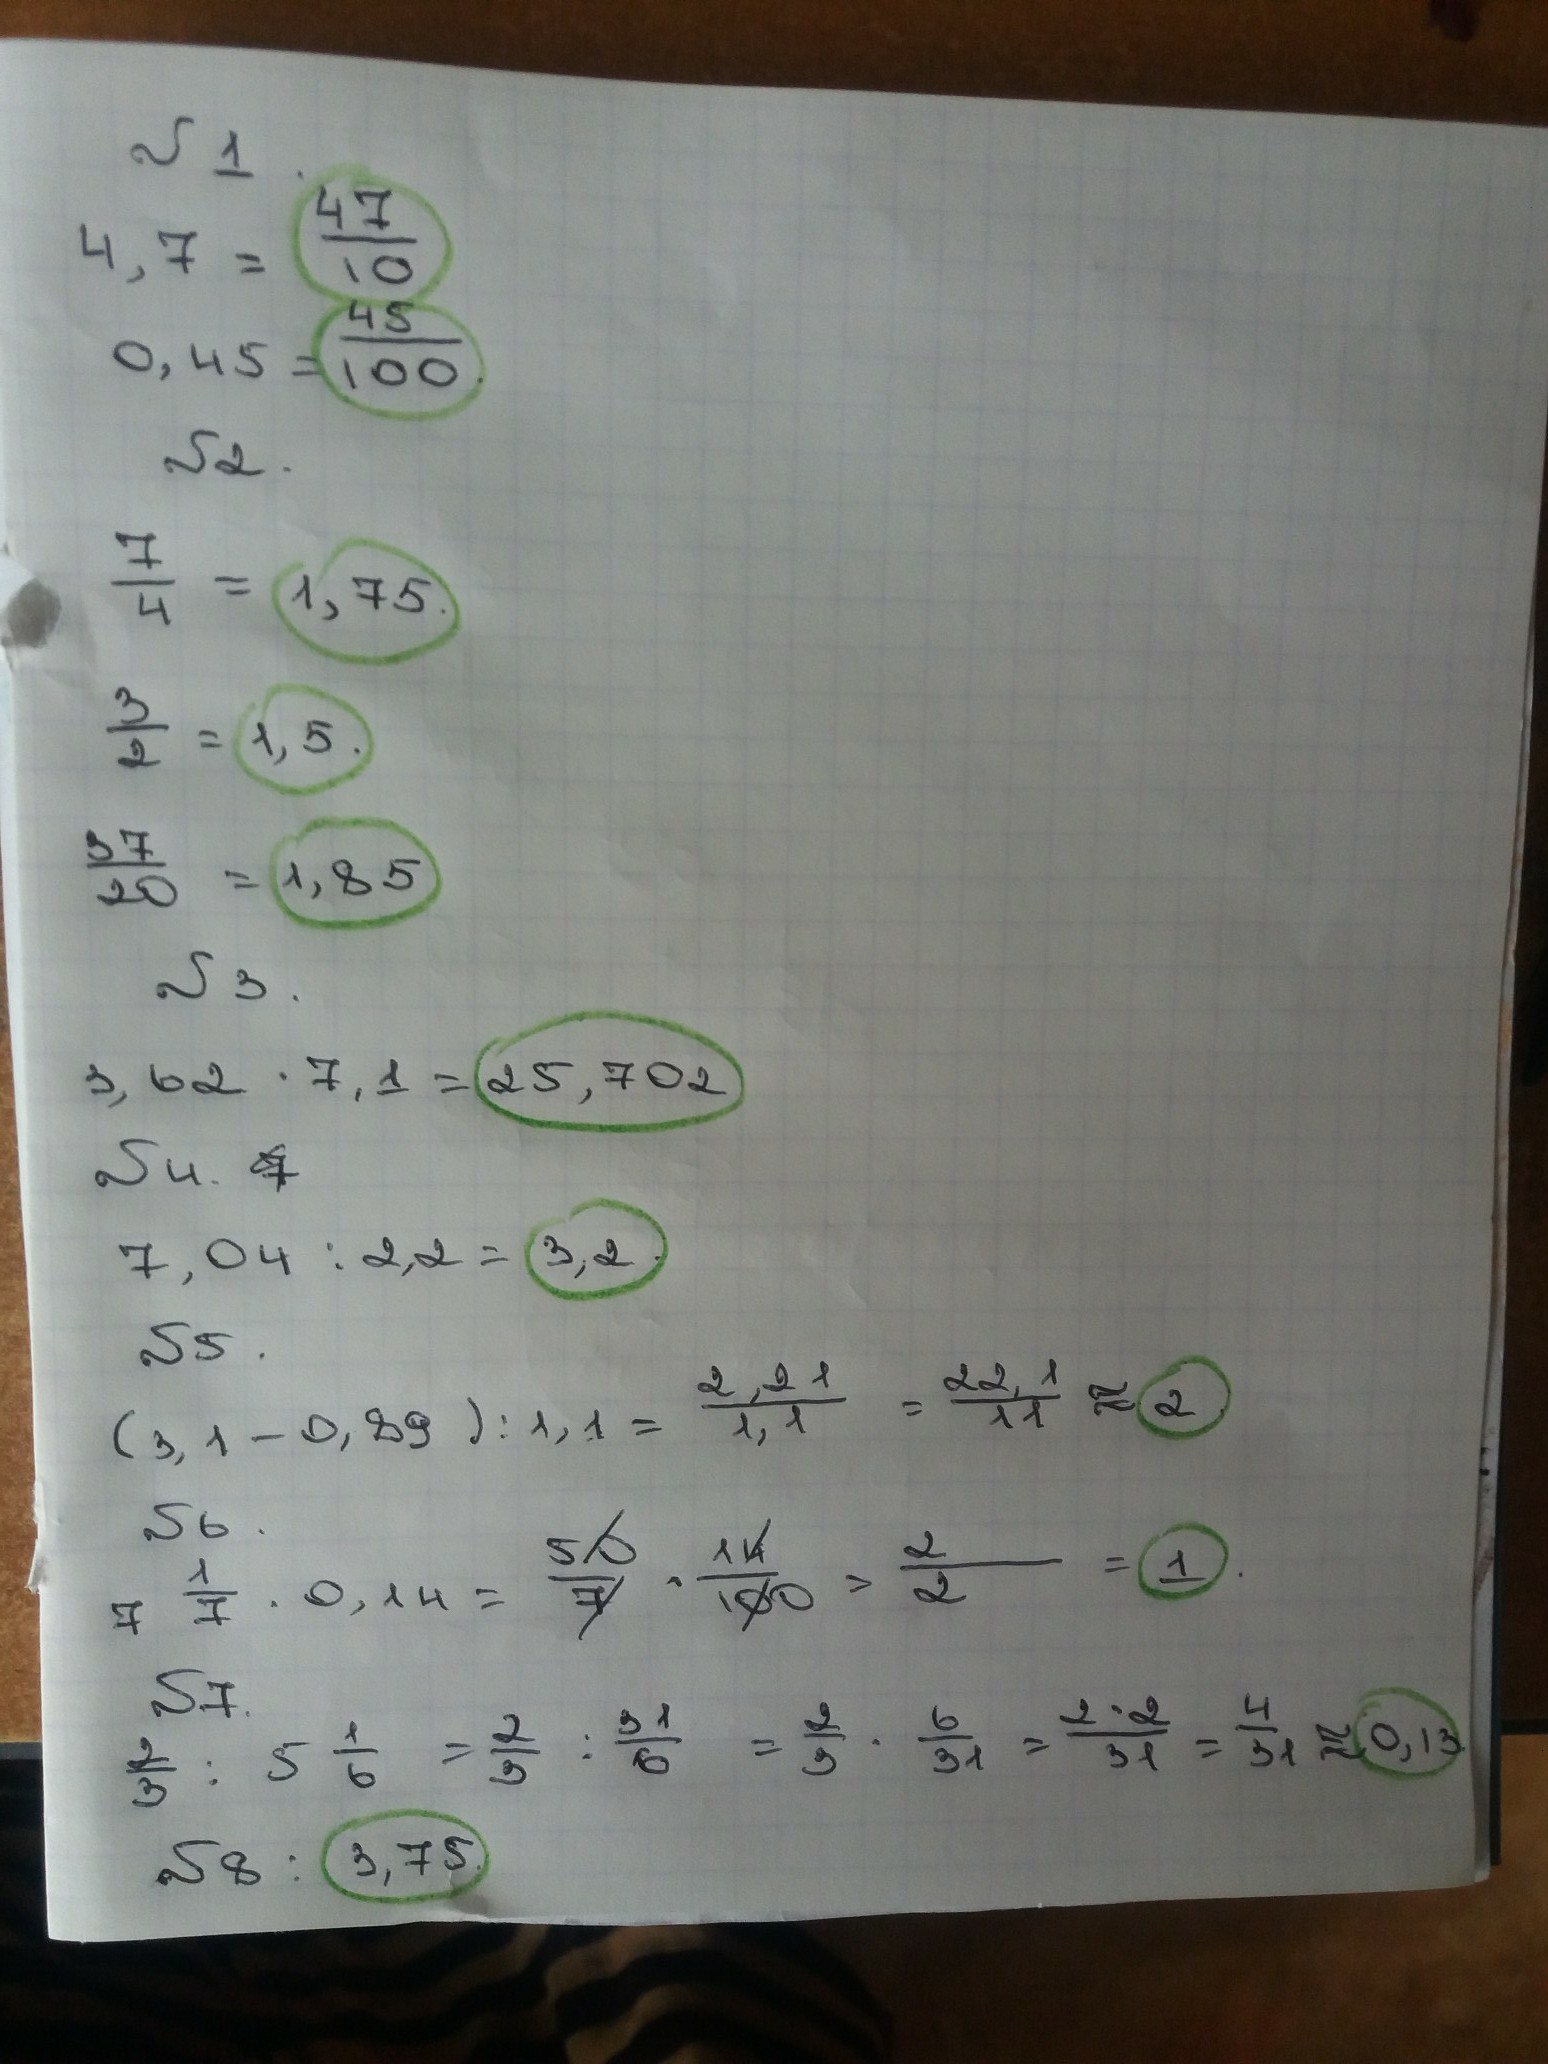 № 1.
4,7 = 47/10
0,45 = 45/100.
№2.
7/4 = 1,75.
3/2 = 1,5.
37/20 = 1,85
№3.
3,62 · 7,1 = 25,702
№4.
7,04 : 2,2 = 3,2.
№5.
(3,1 - 0,89) : 1,1 = 2,21/1,1 = 22,1/11 ≈ 2.
№6.
7 1/7 · 0,14 = 50/7 · 14/100 = 2/2 = 1.
№7.
2/3 : 5 1/6 = 2/3 : 31/6 = 2/3 · 6/31 = 2·2/31 = 4/31 ≈ 0,13
№8 : 3,75.